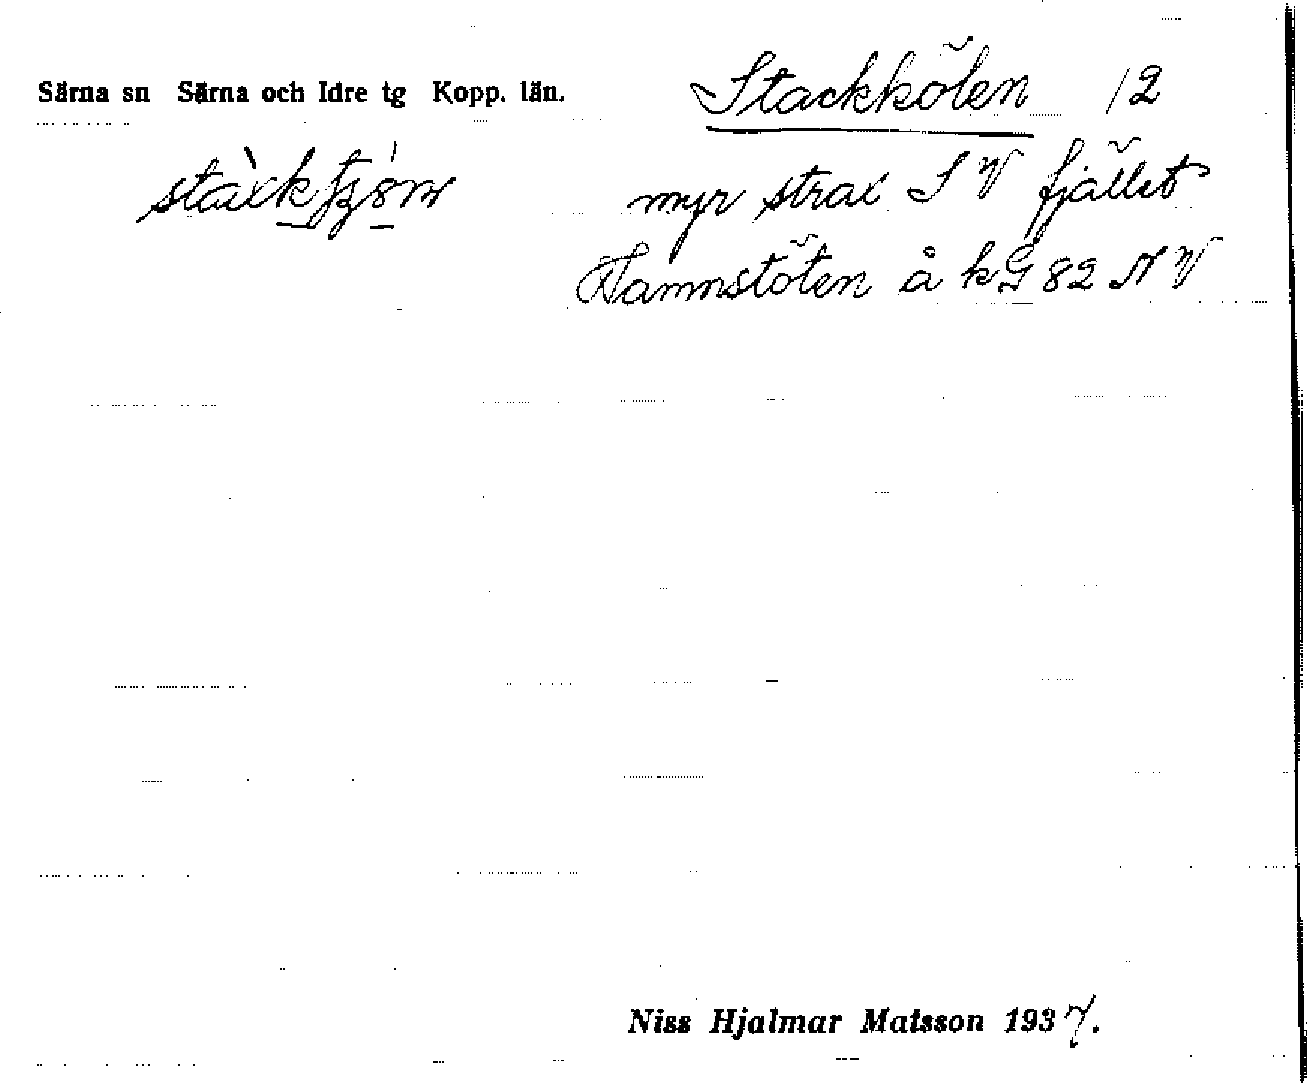 Särna sn Särna och Idre tg Kopp. län.
Stackkölen 12
myr strax S V fjället
Hammstöten å kG 82 N V
Niss Hjalmar Matsson 1937.